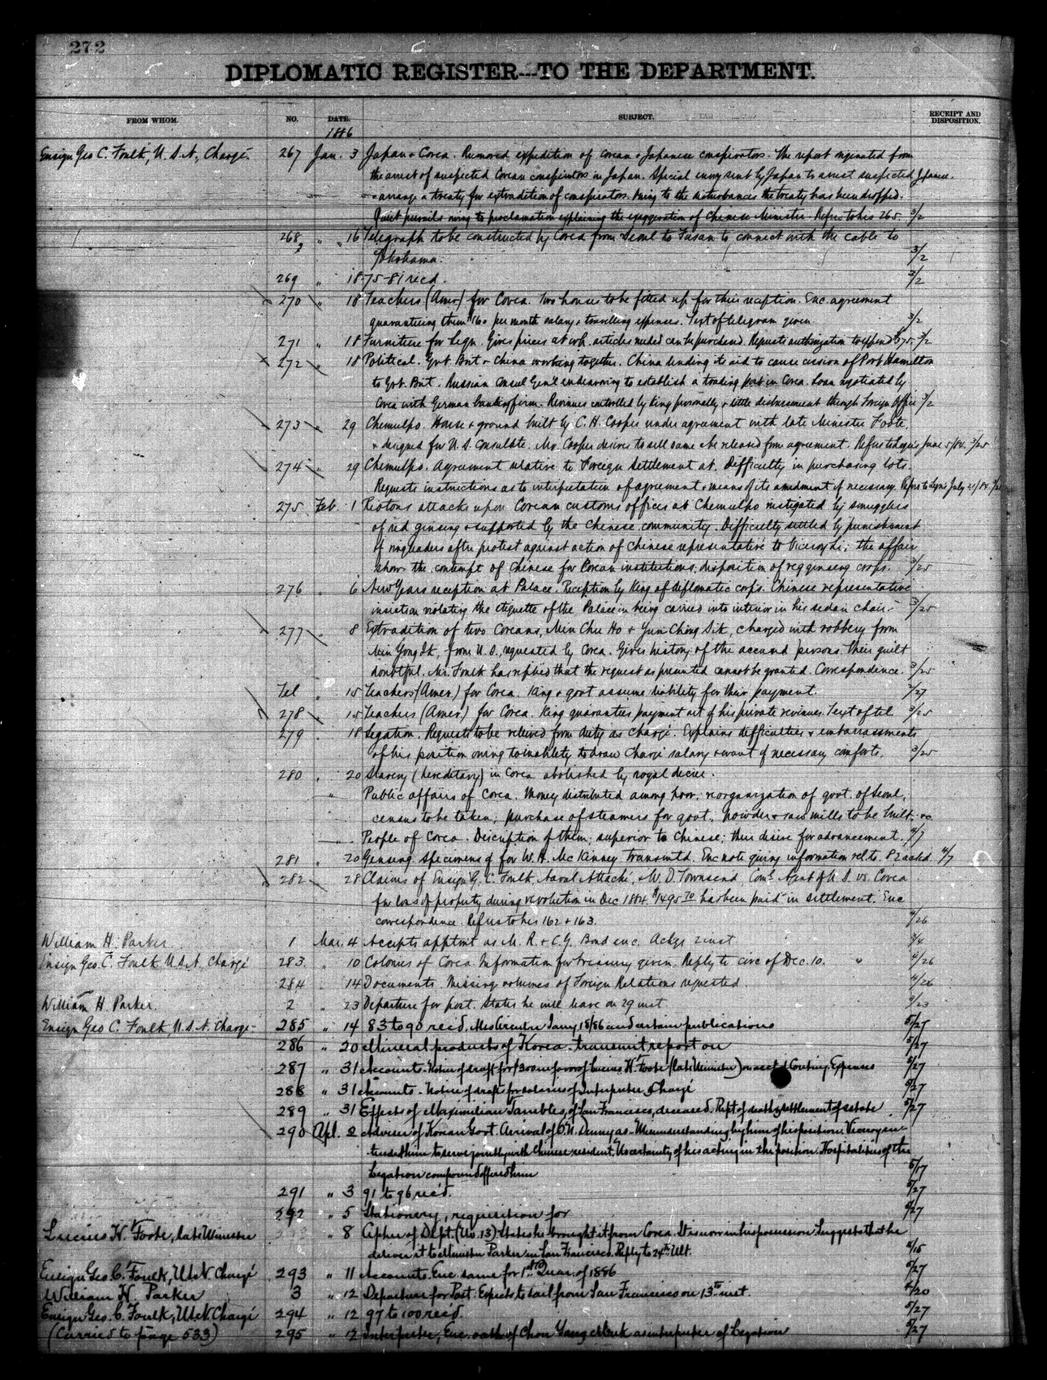 272
DIPLOMATIC REGISTER---TO THE DEPARTMENT.
FROM WHOM. NO. DATE. SUBJECT. RECEIPT AND DISPOSITION.
1886
Ensign Geo C. Foulk, U.S.N., Chargé. 267 Jan. 3 Japan & Corea. Rumored expedition of Corean & Japanese conspirators. The report originated from
the arrest of suspected Corean conspirators in Japan. Special envoy sent by Japan to arrest suspected Japanese
& arrange a treaty for extradition of conspirators. Owing to the disturbances the treaty has been dropped.
Quiet prevails owing to proclamation explaining the exaggeration of Chinese Minister. Refers to his 265. 3/2
268 " 16 Telegraph to be constructed by Corea from Seoul to Fusan to connect with the cable to
Yokohama. 3/2
269 " 18 75-81 recd. 3/2
270 " 18 Teachers (Amer) for Corea. Two houses to be fitted up for their reception. Enc. agreement
guaranteeing them 160 per month salary & travelling expenses. Text of telegram given. 3/2
271 " 18 Furniture for Legn. Gives prices at wh. articles needed can be purchased. Requests authorization to expend $75. 3/2
272 " 18 Political. Grt Brit & China working together. China lending its aid to cause cession of Port Hamilton
to Grt. Brit. Russian Consul Genl endeavoring to establish a trading post in Corea. Loan negotiated by
Corea with German firm. Revenues controlled by King personally & little disbursement through Foreign Office 3/2
273 " 29 Chemulpo. House & ground built by C. H. Cooper under agreement with late Minister Foote,
& designed for U.S. Consulate. Mr. Cooper desires to sell same & be released from agreement. Refers to Legn's June 5/84. 3/25
274 " 29 Chemulpo. Agreement relative to Foreign settlement at. Difficulty in purchasing lots.
Requests instructions as to interpretation of agreement & means of its amendment if necessary. Refers to Legn's July 21/85.
275 Feb. 1 Riotous attacks upon Corean customs offices at Chemulpo instigated by smugglers
of red ginseng & supported by the Chinese community. Difficulty settled by punishment
of ringleaders after protest against action of Chinese representative to Viceroy Li; the affair
shows the contempt of Chinese for Corean institutions; disposition of reg ginseng corps. 3/25
276 " 6 New Years reception at Palace. Reception by King of diplomatic corps. Chinese representative
insists on violating the etiquette of the Palace in being carried into interior in his sedan chair. 3/25
277 " 8 Extradition of two Coreans, Min Chu Ho & Yun Chong Sik, charged with robbery from
Min Yong Ik, from U.S., requested by Corea. Gives history of the accused persons. Their guilt
doubtful. Mr. Foulk has replied that the request as presented cannot be granted. Correspondence. 3/25
Tel " 15 Teachers (Amer.) for Corea. King & govt assume liability for their payment. 2/27
278 " 15 Teachers (Amer) for Corea. King guarantees payment out of his private revenues. Text of tel. 3/25
279 " 18 Legation. Requests to be relieved from duty as Chargé. Explains difficulties & embarrassments
of his position owing to inability to draw Chargé salary & want of necessary comforts. 3/25
280 " 20 Slavery (hereditary) in Corea abolished by royal decree.
" Public affairs of Corea. Money distributed among poor, reorganization of govt. of Seoul,
census to be taken; purchase of steamers for govt., powder & saw mills to be built, &c
" People of Corea. Description of them; superior to Chinese; their desire for advancement. 4/7
281 " 20 Ginseng. Specimens of for W. H. McKinney transmitd. Enc note giving information rel. to. 4/7
282 " 28 Claims of Ensign G. C. Foulk, Naval Attaché, W. D. Townsend, Coml. Agent of U.S. vs. Corea
for loss of property during revolution in Dec 1884. $1495.70 has been paid in settlement. Enc
correspondence. Refers to his 162 & 163. 4/26
William H. Parker 1 Mar. 4 Accepts apptmt as M. R. & C. G. Bond enc. 3/4
Ensign Geo. C. Foulk U.S.N. Chargé 283 " 10 Colonies of Corea. Information for Treasury given. Reply to circ of Dec. 10. 4/26
284 " 14 Documents. Missing volumes of Foreign Relations requested. 4/26
William H. Parker. 2 " 23 Departure for post. States he will leave on 29 inst. 3/23
Ensign Geo C. Foulk U.S.N. Chargé 285 " 14 83 to 90 rec'd. Also Circular Jany 18/86 and certain publications 5/27
286 " 20 Mineral products of Korea. transmit report on 5/27
287 " 31 Accounts. Notice of draft for in favor of Lucius H. Foote (late Minister) on acct of Conting. Expenses 5/27
288 " 31 Accounts. Notice of drafts for salaries of Interpreter & Chargé 5/27
289 " 31 Effects of Maximilian Taubles, of San Francisco, deceased. Rept. of death & settlement of estate 5/27
290 Apl. 2 Adviser of Korean Govt. Arrival of O. N. Denny as. Misunderstanding by him of his position. Viceroy
him to serve jointly with Chinese resident. Uncertainty of his acting in the position. Hospitalities of the
Legation compound offered him 5/17
291 " 3 91 to 96 rec'd. 5/27
292 " 5 Stationery, requisition for 5/27
Lucius H. Foote, late Minister " 8 Cipher of Dept. (No. 13) States he brought it from Corea. It is now in his possession. Suggests that he
deliver it to Minister Parker in San Francisco. Reply to 24th Ult. 4/15
Ensign Geo. C. Foulk, U.S.N. Chargé 293 " 11 Accounts. Enc. same for 1st Quar. of 1886 5/27
William H. Parker 3 " 12 Departure for Post. Expects to sail from San Francisco on 13th inst. 4/20
Ensign Geo. C. Foulk, U.S.N. Chargé 294 " 12 97 to 100 rec'd. 5/27
(Carried to page 533) 295 " 12 Interpreter, Enc. oath of Chon Yang as interpreter of Legation 5/27